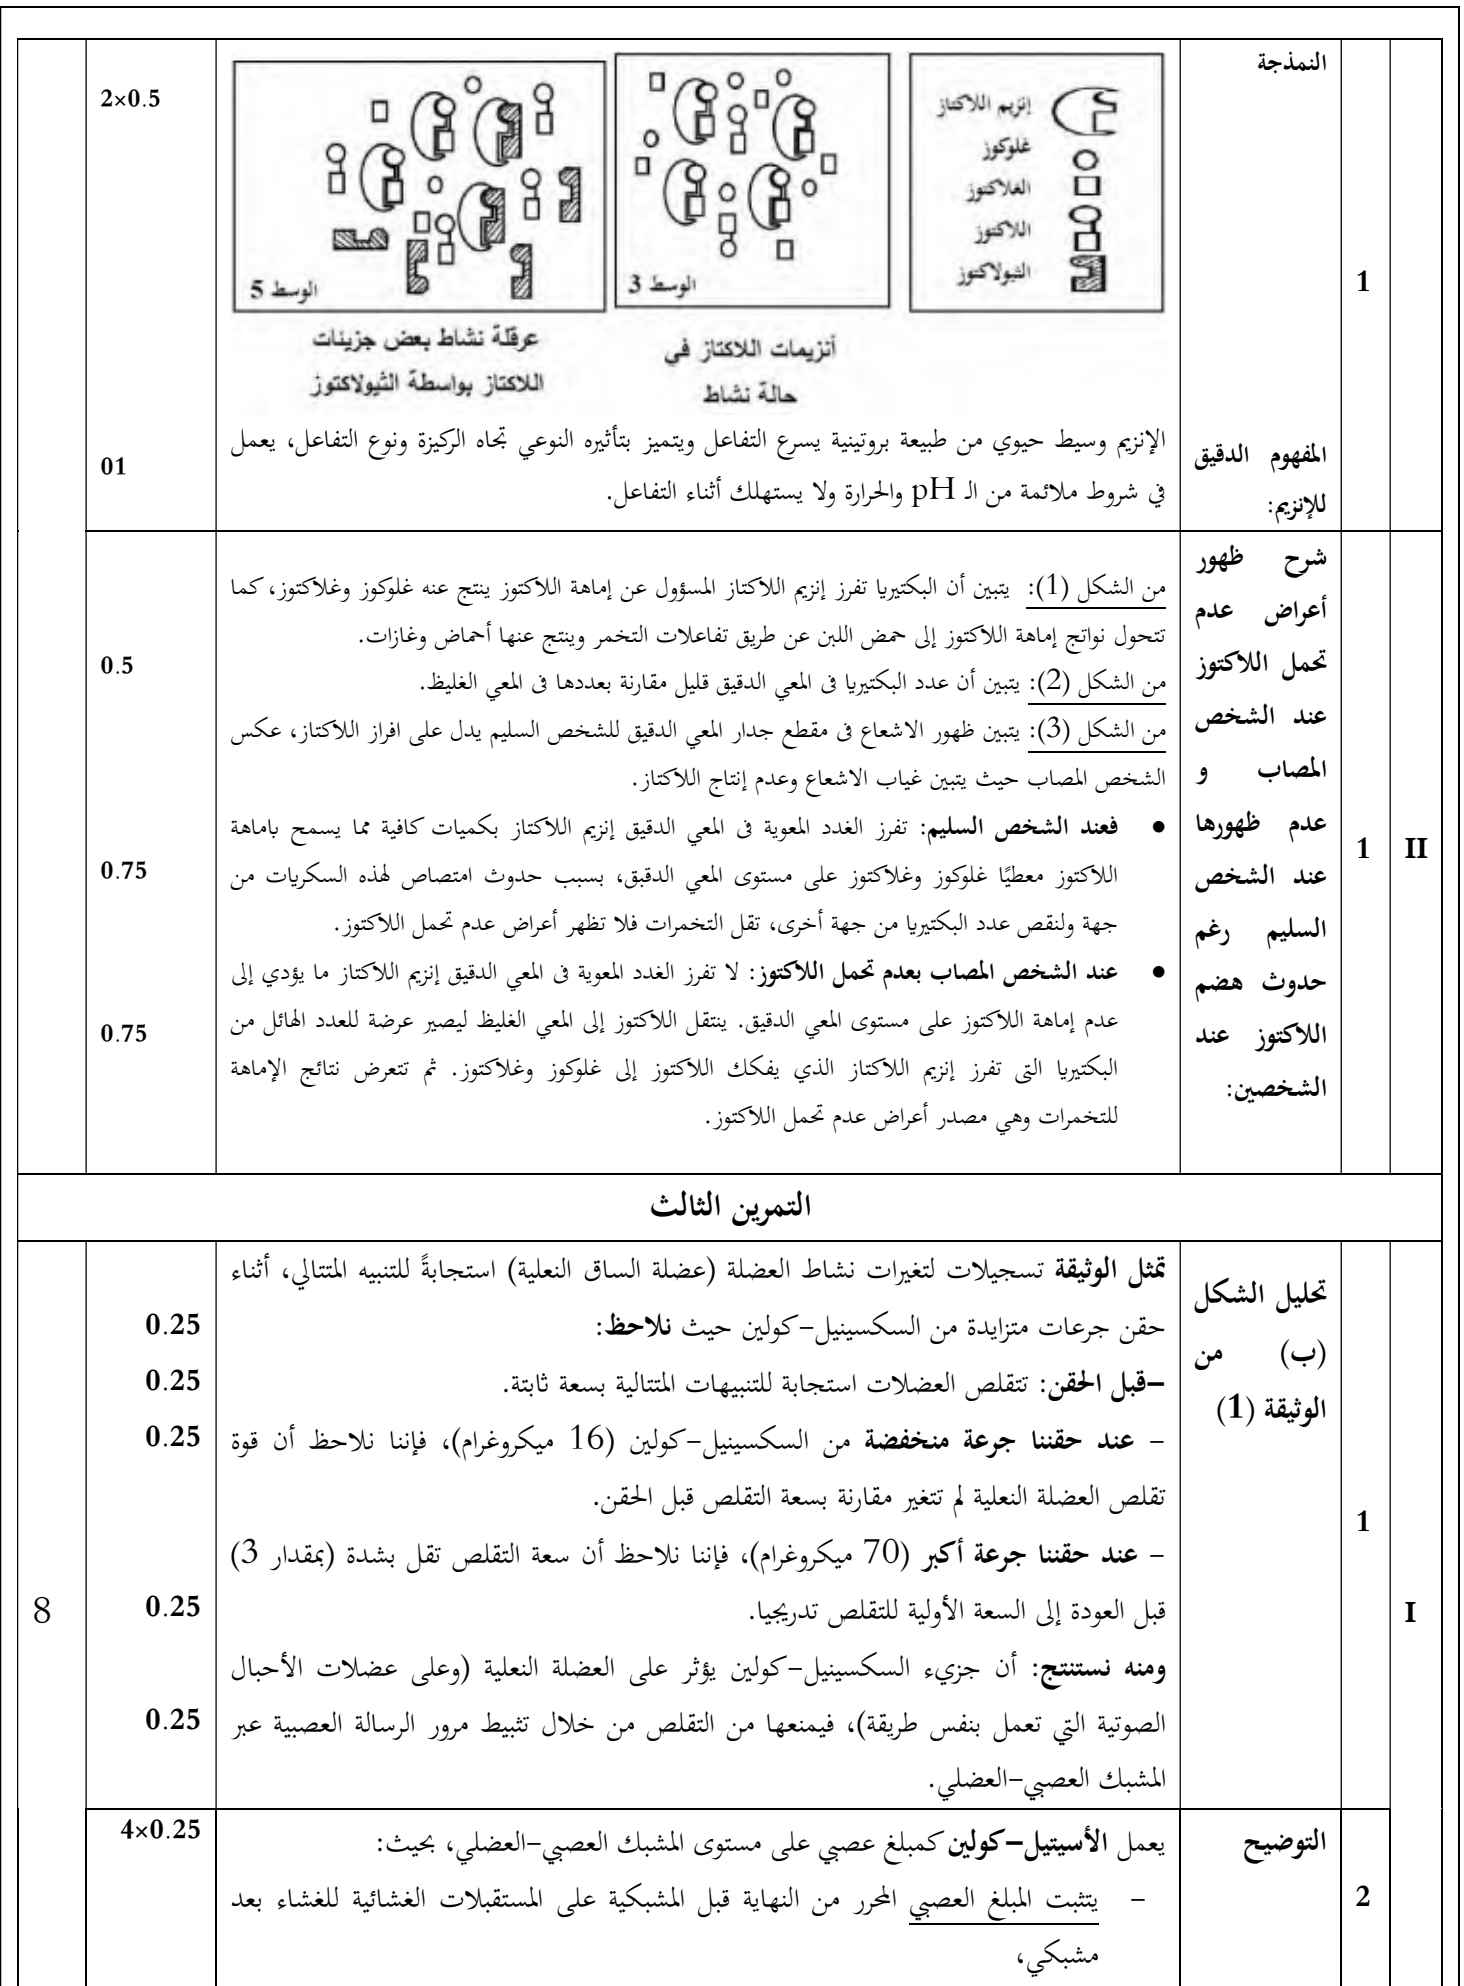 النمذجة
2×0.5
إنزيم اللاكتاز
غلوكوز
الغلاكتوز
اللاكتوز
الثيولاكتوز
الوسط 3
الوسط 5
أنزيمات اللاكتاز في
حالة نشاط
عرقلة نشاط بعض جزيئات
اللاكتاز بواسطة الثيولاكتوز
1
المفهوم الدقيق
للإنزيم:
الإنزيم وسيط حيوي من طبيعة بروتينية يسرع التفاعل ويتميز بتأثيره النوعي تجاه الركيزة ونوع التفاعل، يعمل
في شروط ملائمة من الـ pH والحرارة ولا يستهلك أثناء التفاعل.
01
II
1
شرح ظهور
أعراض عدم
تحمل اللاكتوز
عند الشخص
المصاب و
عدم ظهورها
عند الشخص
السليم رغم
حدوث هضم
اللاكتوز عند
الشخصين:
من الشكل (1): يتبين أن البكتيريا تفرز إنزيم اللاكتاز المسؤول عن إماهة اللاكتوز ينتج عنه غلوكوز وغلاكتوز، كما
تتحول نواتج إماهة اللاكتوز إلى حمض اللبن عن طريق تفاعلات التخمر وينتج عنها أحماض وغازات.
من الشكل (2): يتبين أن عدد البكتيريا فى المعي الدقيق قليل مقارنة بعددها فى المعي الغليظ.
من الشكل (3): يتبين ظهور الاشعاع فى مقطع جدار المعي الدقيق للشخص السليم يدل على افراز اللاكتاز، عكس
الشخص المصاب حيث يتبين غياب الاشعاع وعدم إنتاج اللاكتاز.
0.5
• فعند الشخص السليم: تفرز الغدد المعوية فى المعي الدقيق إنزيم اللاكتاز بكميات كافية مما يسمح باماهة
اللاكتوز معطيًا غلوكوز وغلاكتوز على مستوى المعي الدقبق، بسبب حدوث امتصاص لهذه السكريات من
جهة ولنقص عدد البكتيريا من جهة أخرى، تقل التخمرات فلا تظهر أعراض عدم تحمل اللاكتوز.
0.75
• عند الشخص المصاب بعدم تحمل اللاكتوز: لا تفرز الغدد المعوية فى المعي الدقيق إنزيم اللاكتاز ما يؤدي إلى
عدم إماهة اللاكتوز على مستوى المعي الدقيق. ينتقل اللاكتوز إلى المعي الغليظ ليصير عرضة للعدد الهائل من
البكتيريا التى تفرز إنزيم اللاكتاز الذي يفكك اللاكتوز إلى غلوكوز وغلاكتوز. ثم تتعرض نتائج الإماهة
للتخمرات وهي مصدر أعراض عدم تحمل اللاكتوز.
0.75
التمرين الثالث
I
1
تحليل الشكل
(ب) من
الوثيقة (1)
تمثل الوثيقة تسجيلات لتغيرات نشاط العضلة (عضلة الساق النعلية) استجابةً للتنبيه المتتالي، أثناء
حقن جرعات متزايدة من السكسينيل-كولين حيث نلاحظ:
0.25
–قبل الحقن: تتقلص العضلات استجابة للتنبيهات المتتالية بسعة ثابتة.
0.25
– عند حقننا جرعة منخفضة من السكسينيل-كولين (16 ميكروغرام)، فإننا نلاحظ أن قوة
0.25
تقلص العضلة النعلية لم تتغير مقارنة بسعة التقلص قبل الحقن.
– عند حقننا جرعة أكبر (70 ميكروغرام)، فإننا نلاحظ أن سعة التقلص تقل بشدة (بمقدار 3)
قبل العودة إلى السعة الأولية للتقلص تدريجيا.
0.25
8
ومنه نستنتج: أن جزيء السكسينيل-كولين يؤثر على العضلة النعلية (وعلى عضلات الأحبال
الصوتية التي تعمل بنفس طريقة)، فيمنعها من التقلص من خلال تثبيط مرور الرسالة العصبية عبر
0.25
المشبك العصبي-العضلي.
2
التوضيح
يعمل الأسيتيل–كولين كمبلغ عصبي على مستوى المشبك العصبي-العضلي، بحيث:
4×0.25
– يتثبت المبلغ العصبي المحرر من النهاية قبل المشبكية على المستقبلات الغشائية للغشاء بعد
مشبكي،